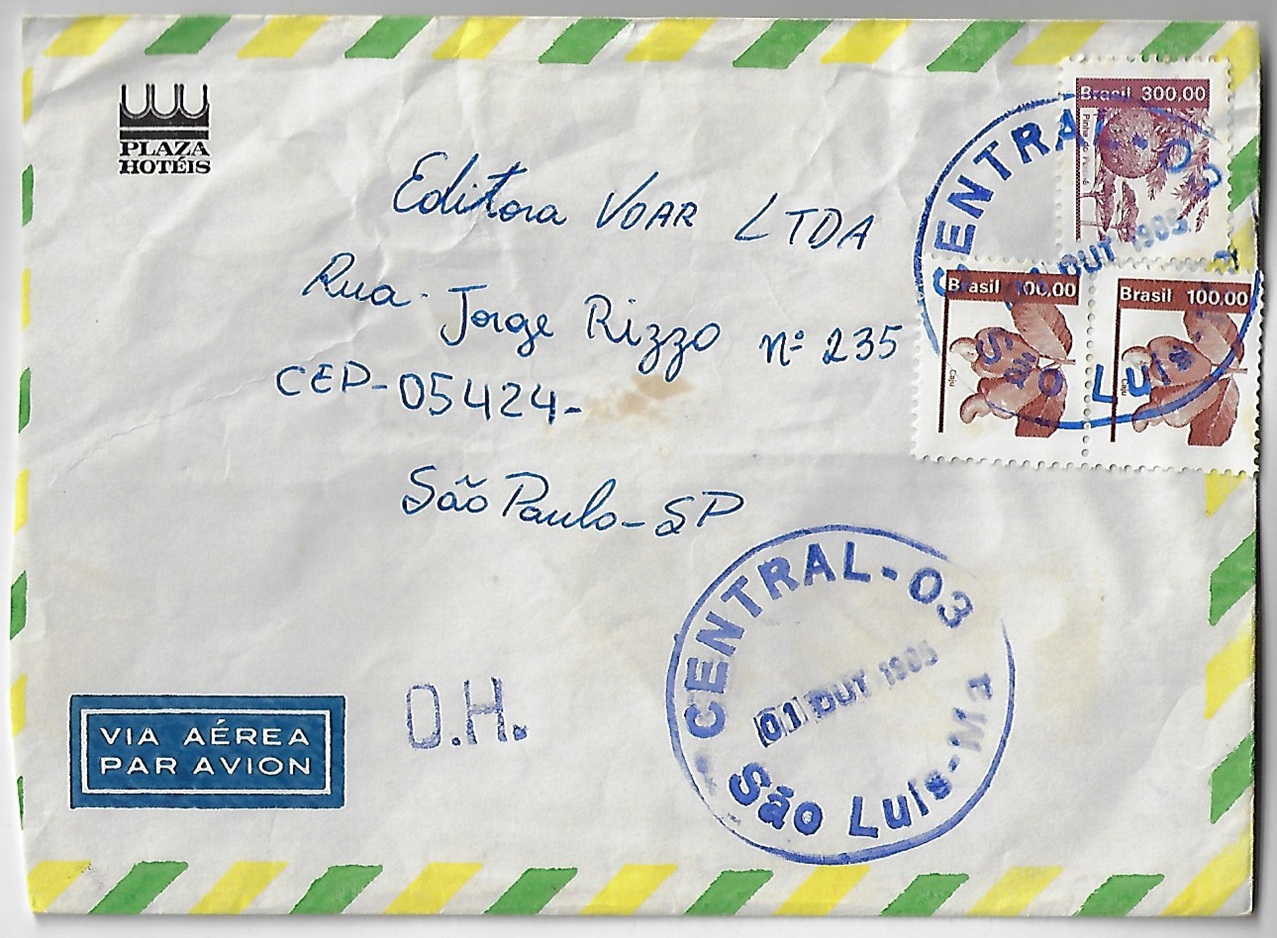 PLAZA
HOTÉIS
Brasil 300,00
CENTRAL-03
OUT 1985
Brasil 100,00
Caju
Brasil 100,00
Caju
São Luis
Editora VOAR LTDA
Rua Jorge Rizzo nº 235
CEP-05424-
São Paulo-SP
VIA AÉREA
PAR AVION
O.H.
CENTRAL-03
01 OUT 1985
São Luis-Ma